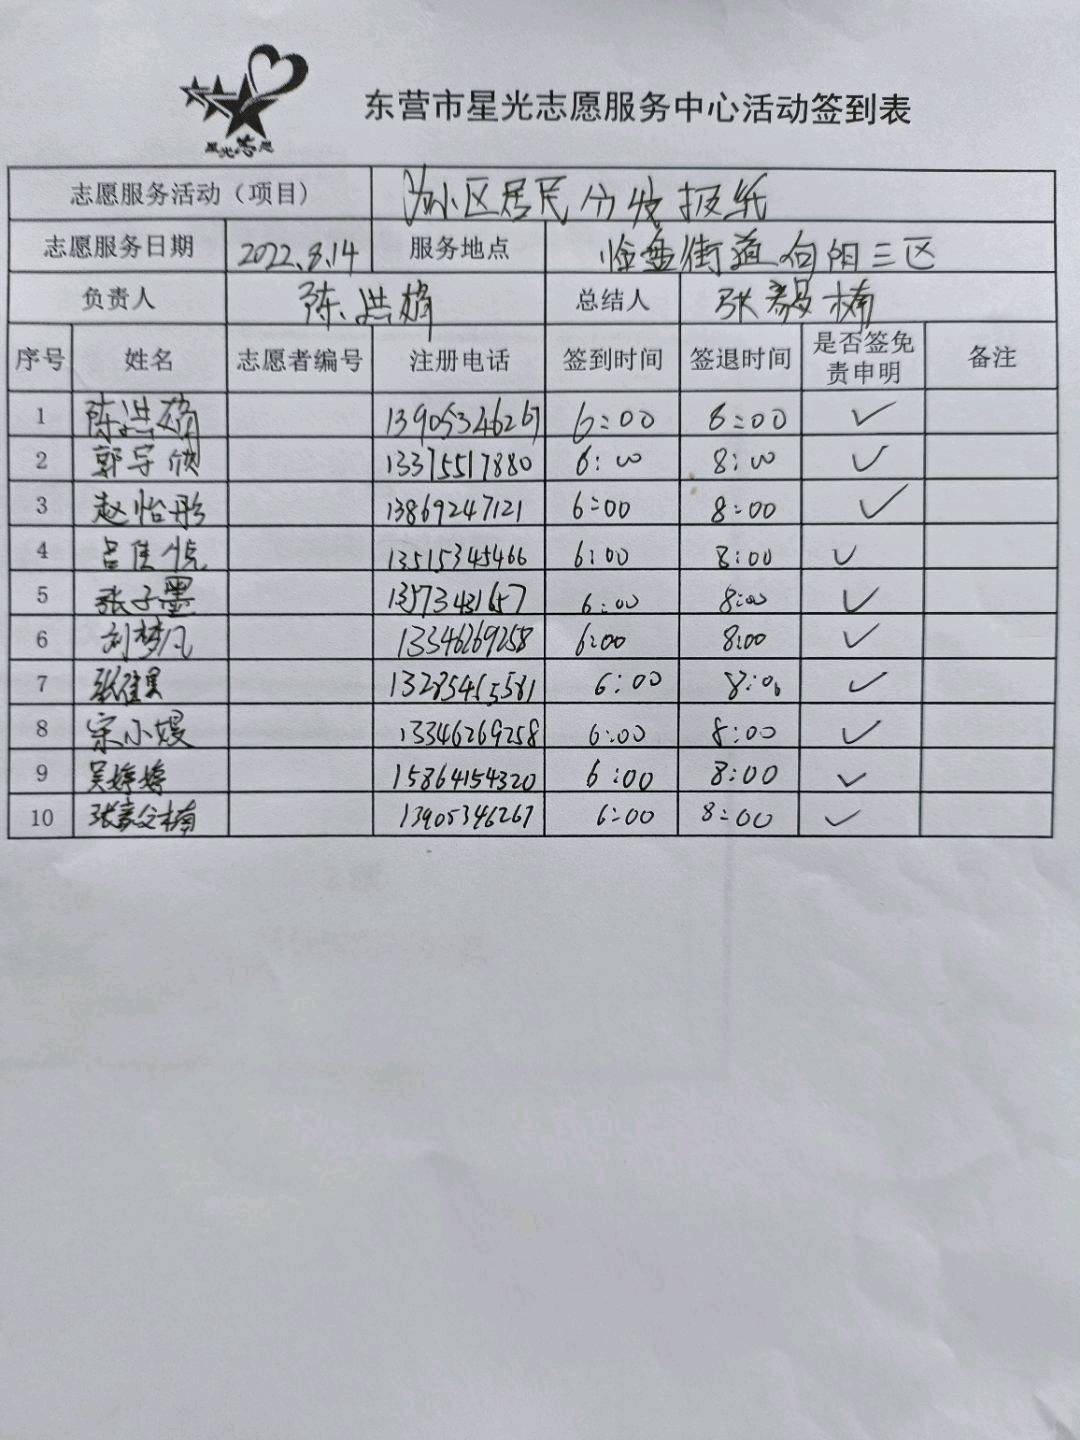 星光志愿
东营市星光志愿服务中心活动签到表
志愿服务活动（项目） 为小区居民分发报纸
志愿服务日期 2022.8.14 服务地点 临盘街道向阳三区
负责人 陈洪 总结人 张 楠
序号 姓名 志愿者编号 注册电话 签到时间 签退时间 是否签免责申明 备注
1 陈洪 13905346267 6:00 8:00 ✓
2 郭宇欣 13375517880 6:00 8:00 ✓
3 赵怡彤 13869247121 6:00 8:00 ✓
4 吕佳悦 13515345466 6:00 8:00 ✓
5 张子墨 13573431657 6:00 8:00 ✓
6 刘梦凡 13346269258 6:00 8:00 ✓
7 张佳昊 13285455581 6:00 8:00 ✓
8 宋小媛 13346269258 6:00 8:00 ✓
9 吴婷婷 15864154320 6:00 8:00 ✓
10 张 楠 13905346267 6:00 8:00 ✓